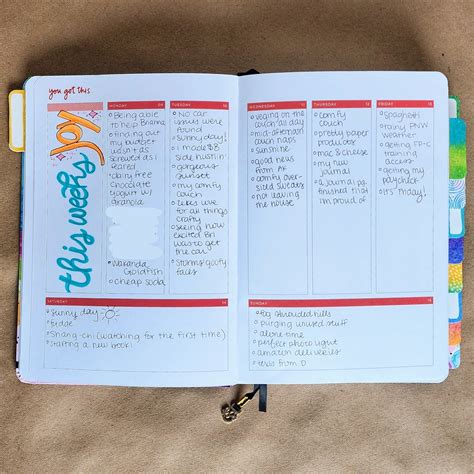 you got this
this week's
JOY
MONDAY
Being able
to help Briana
finding out
my budget
wasn't as
screwed as I
feared
dairy free
chocolate
yogurt w/
granola
Wakanda
Goldfish
cheap soda
TUESDAY
No car
issues were
found
Sunny day!
I made $8
side hustlin'
gorgeous
sunset
my comfy
couch
zebra live
for all things
crafty
seeing how
excited Bri
was to get
the car
Storm's goofy
faces
WEDNESDAY
veging on the
couch all day
mid-afternoon
couch naps
sunshine
good news
from AK
comfy over-
sized sweaters
not leaving
me house
THURSDAY
comfy
couch
pretty paper
products
mac & cheese
my new
journal
a journal page
finished that
I'm proud of
FRIDAY
Spaghetti
rainy PNW
weather
getting
training
access
getting my
paycheck
it's Friday!
SATURDAY
sunny day
fudge
Shang-chi (watching for the first time)
starting a new book!
SUNDAY
fog shrouded hills
purging unused stuff
alone time
perfect photo light
amazon deliveries
texts from D